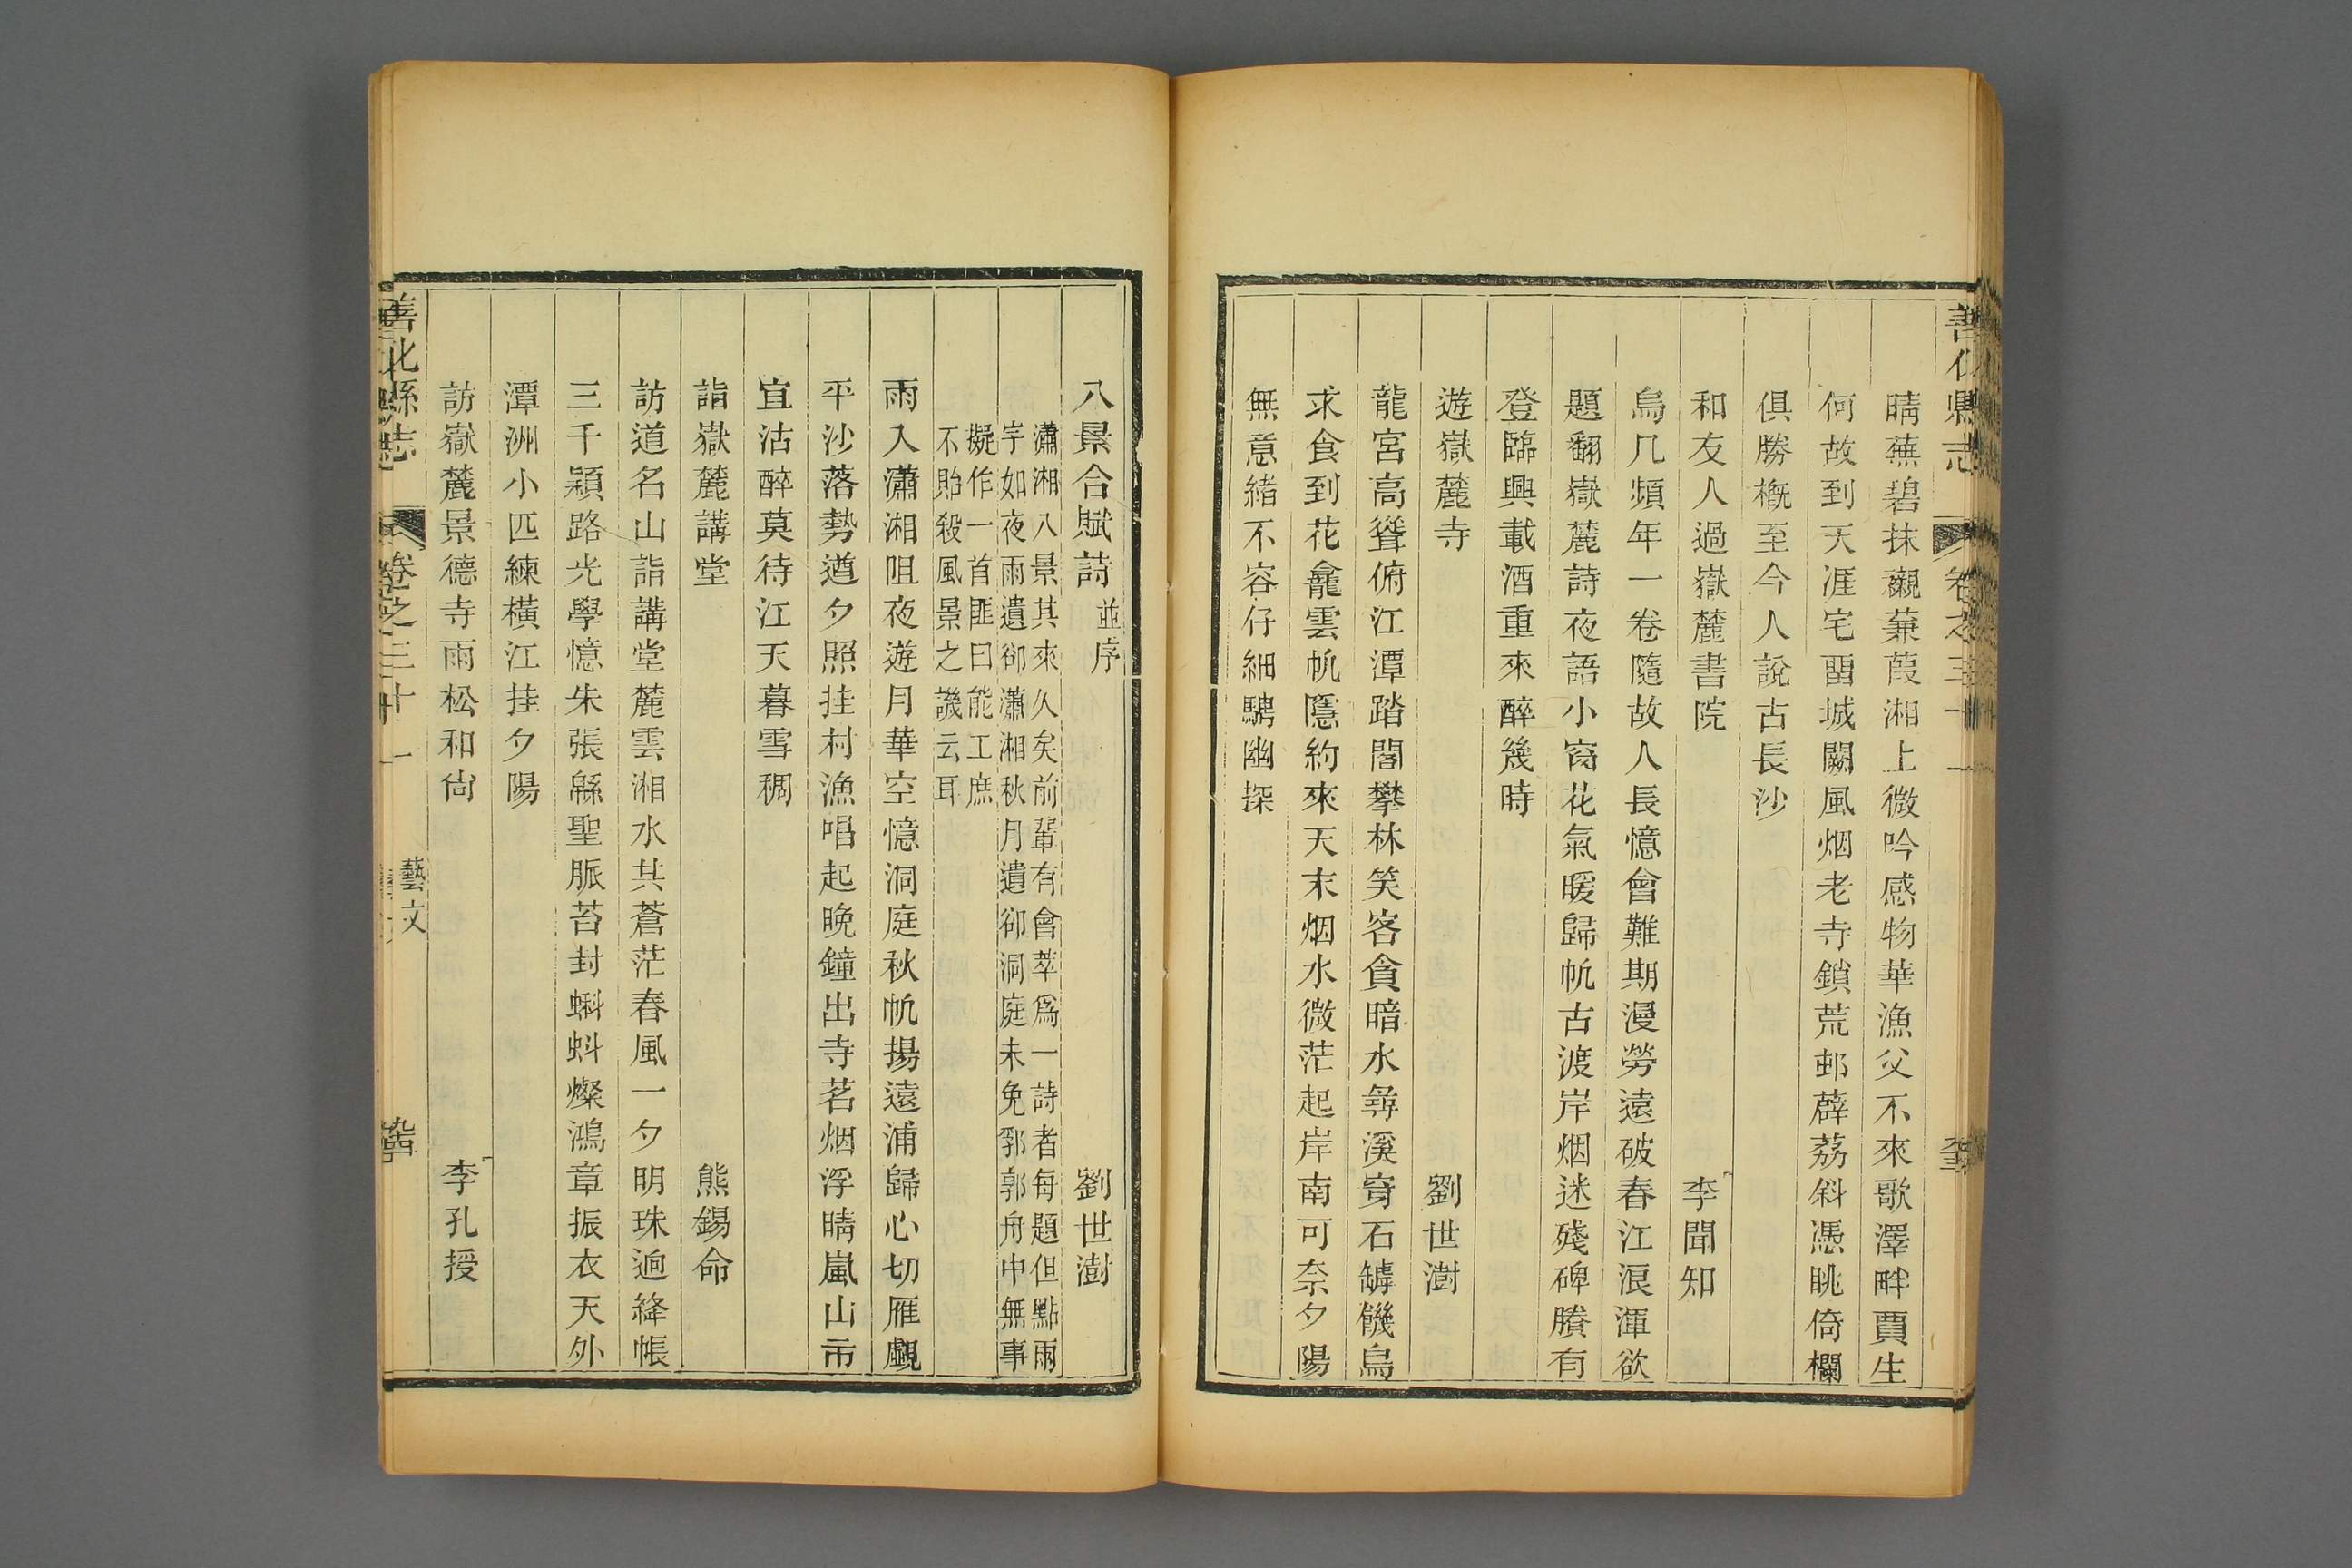 善化縣志
卷之三十一
晴蕪碧抹襯蒹葭湘上微吟感物華漁父不來歌澤畔賈生
何故到天涯宅畱城闕風烟老寺鎖荒邨薜荔斜憑眺倚欄
俱勝槪至今人說古長沙
和友人過嶽麓書院
李聞知
烏几頻年一卷隨故人長憶會難期漫勞遠破春江浪渾欲
題翻嶽麓詩夜語小窗花氣暖歸帆古渡岸烟迷殘碑賸有
登臨興載酒重來醉幾時
遊嶽麓寺
劉世澍
龍宮高聳俯江潭踏閣攀林笑客貪暗水尋溪穿石罅饑烏
求食到花龕雲帆隱約來天末烟水微茫起岸南可奈夕陽
無意緒不容仔細騁幽探
八景合賦詩並序
劉世澍
瀟湘八景其來久矣前輩有會萃爲一詩者每題但點兩
字如夜雨遺卻瀟湘秋月遺卻洞庭未免郛郭舟中無事
擬作一首匪曰能工庶
不貽殺風景之譏云耳
雨入瀟湘阻夜遊月華空憶洞庭秋帆揚遠浦歸心切雁覷
平沙落勢遒夕照挂村漁唱起晚鐘出寺茗烟浮晴嵐山市
宜沽醉莫待江天暮雪稠
詣嶽麓講堂
熊錫命
訪道名山詣講堂麓雲湘水共蒼茫春風一夕明珠迥絳帳
三千穎路光學憶朱張緜聖脈苔封蝌蚪燦鴻章振衣天外
潭洲小匹練橫江挂夕陽
訪嶽麓景德寺雨松和尙
李孔授
善化縣志
卷之三十一
藝文